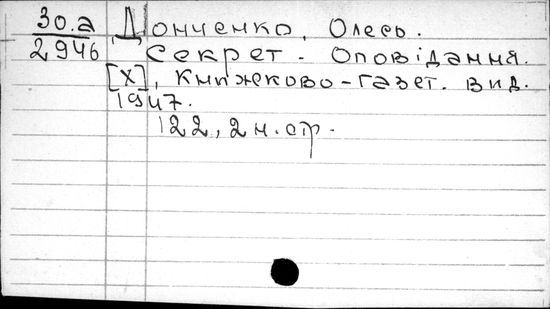 30.а Донченко, Олесь.
2946 Секрет. Оповідання.
[Х], Книжково-газет. вид.
1947.
122, 2 н. стр.